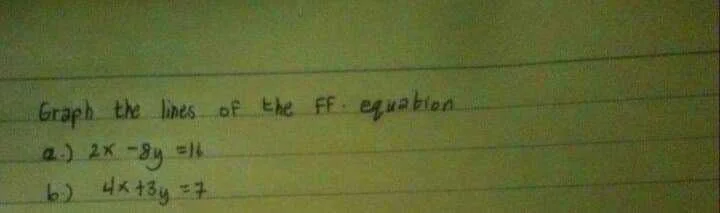 Graph the lines of the ff. equation
a.) 2x - 8y = 16
b.) 4x + 3y = 7